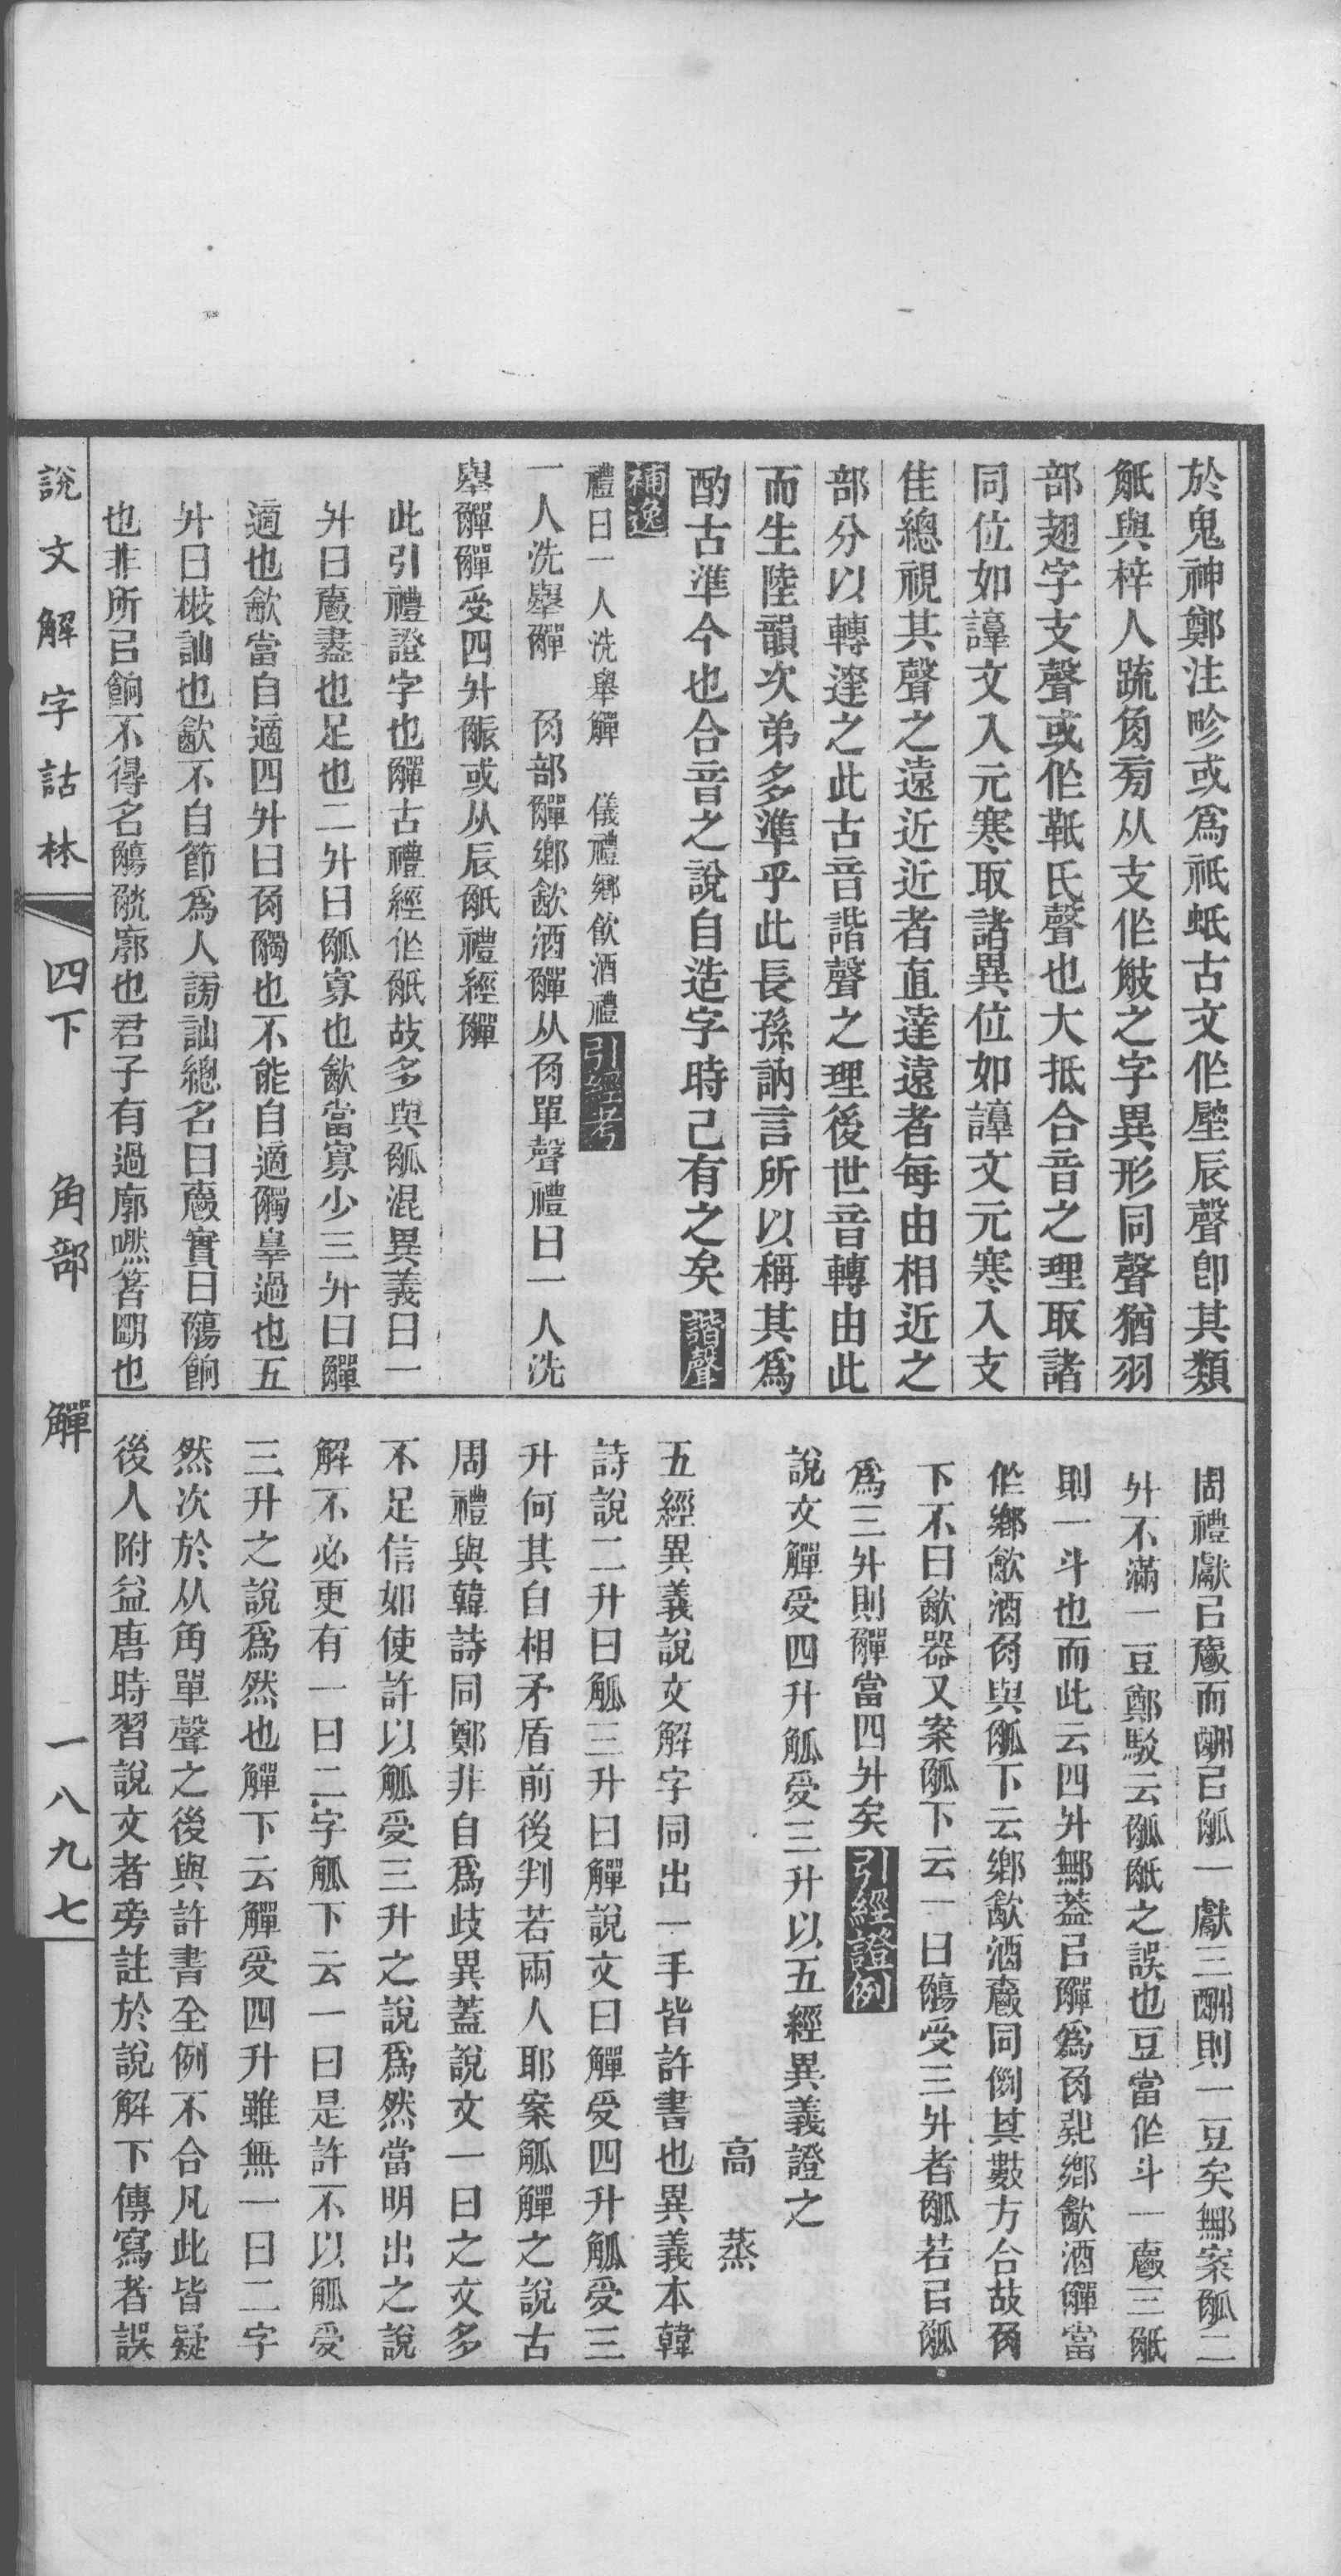 於鬼神鄭注畛或爲祇蚳古文作𡐦辰聲卽其類
觝與梓人疏角旁从支作䚳之字異形同聲猶羽
部翅字支聲或作䎶氏聲也大抵合音之理取諸
同位如諄文入元寒取諸異位如諄文元寒入支
佳總視其聲之遠近近者直達遠者每由相近之
部分以轉達之此古音諧聲之理後世音轉由此
而生陸韻次弟多準乎此長孫訥言所以稱其爲
酌古準今也合音之說自造字時已有之矣諧聲
補逸
禮曰一人洗舉觶 儀禮鄉飲酒禮引經考
一人洗舉觶 角部觶鄉飲酒觶从角單聲禮曰一人洗
舉觶觶受四升䚨或从辰觝禮經觶
此引禮證字也觶古禮經作觝故多與觚混異義曰一
升曰爵盡也足也二升曰觚寡也飲當寡少三升曰觶
適也飲當自適四升曰角觸也不能自適觸辠過也五
升曰散訕也飲不自節爲人謗訕總名曰爵實曰觴餉
也非所㠯餉不得名觴觥廓也君子有過廓㷼箸明也
周禮獻㠯爵而酬㠯觚一獻三酬則一豆矣鄦案觚二
升不滿一豆鄭駁云觚觝之誤也豆當作斗一爵三觝
則一斗也而此云四升鄦蓋㠯觶爲角鄉飲酒觶當
作鄉飲酒角與觚下云鄉飲酒爵同例其數方合故角
下不曰飲器又案觚下云一曰觴受三升者觚若㠯觚
爲三升則觶當四升矣引經證例
說文觶受四升觚受三升以五經異義證之
高 蒸
五經異義說文解字同出一手皆許書也異義本韓
詩說二升曰觚三升曰觶說文曰觶受四升觚受三
升何其自相矛盾前後判若兩人耶案觚觶之說古
周禮與韓詩同鄭非自爲歧異蓋說文一曰之文多
不足信如使許以觚受三升之說爲然當明出之說
解不必更有一曰二字觚下云一曰是許不以觚受
三升之說爲然也觶下云觶受四升雖無一曰二字
然次於从角單聲之後與許書全例不合凡此皆疑
後人附益唐時習說文者旁註於說解下傳寫者誤
說文解字詁林 四下 角部 觶 一八九七